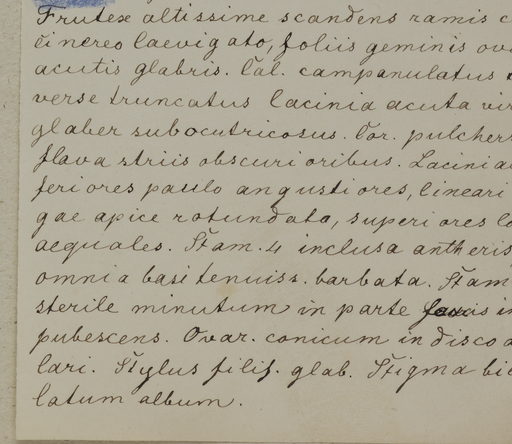 Frutex altissime scandens ramis c
cinereo laevigato, foliis geminis ova
acutis glabris. Cal. campanulatus
verse truncatus lacinia acuta vir
glaber subocutricosus. Cor. pulcherr
flava striis obscurioribus. Lacinia
feriores paulo angustiores, lineari
gae apice rotundata, superiores lo
aequales. Stam. 4 inclusa antheris
omnia basi tenuiss. barbata. Stam
sterile minutum in parte faucis in
pubescens. Ovar. conicum in disco a
lari. Stylus filif. glab. Stigma bi
latum album.